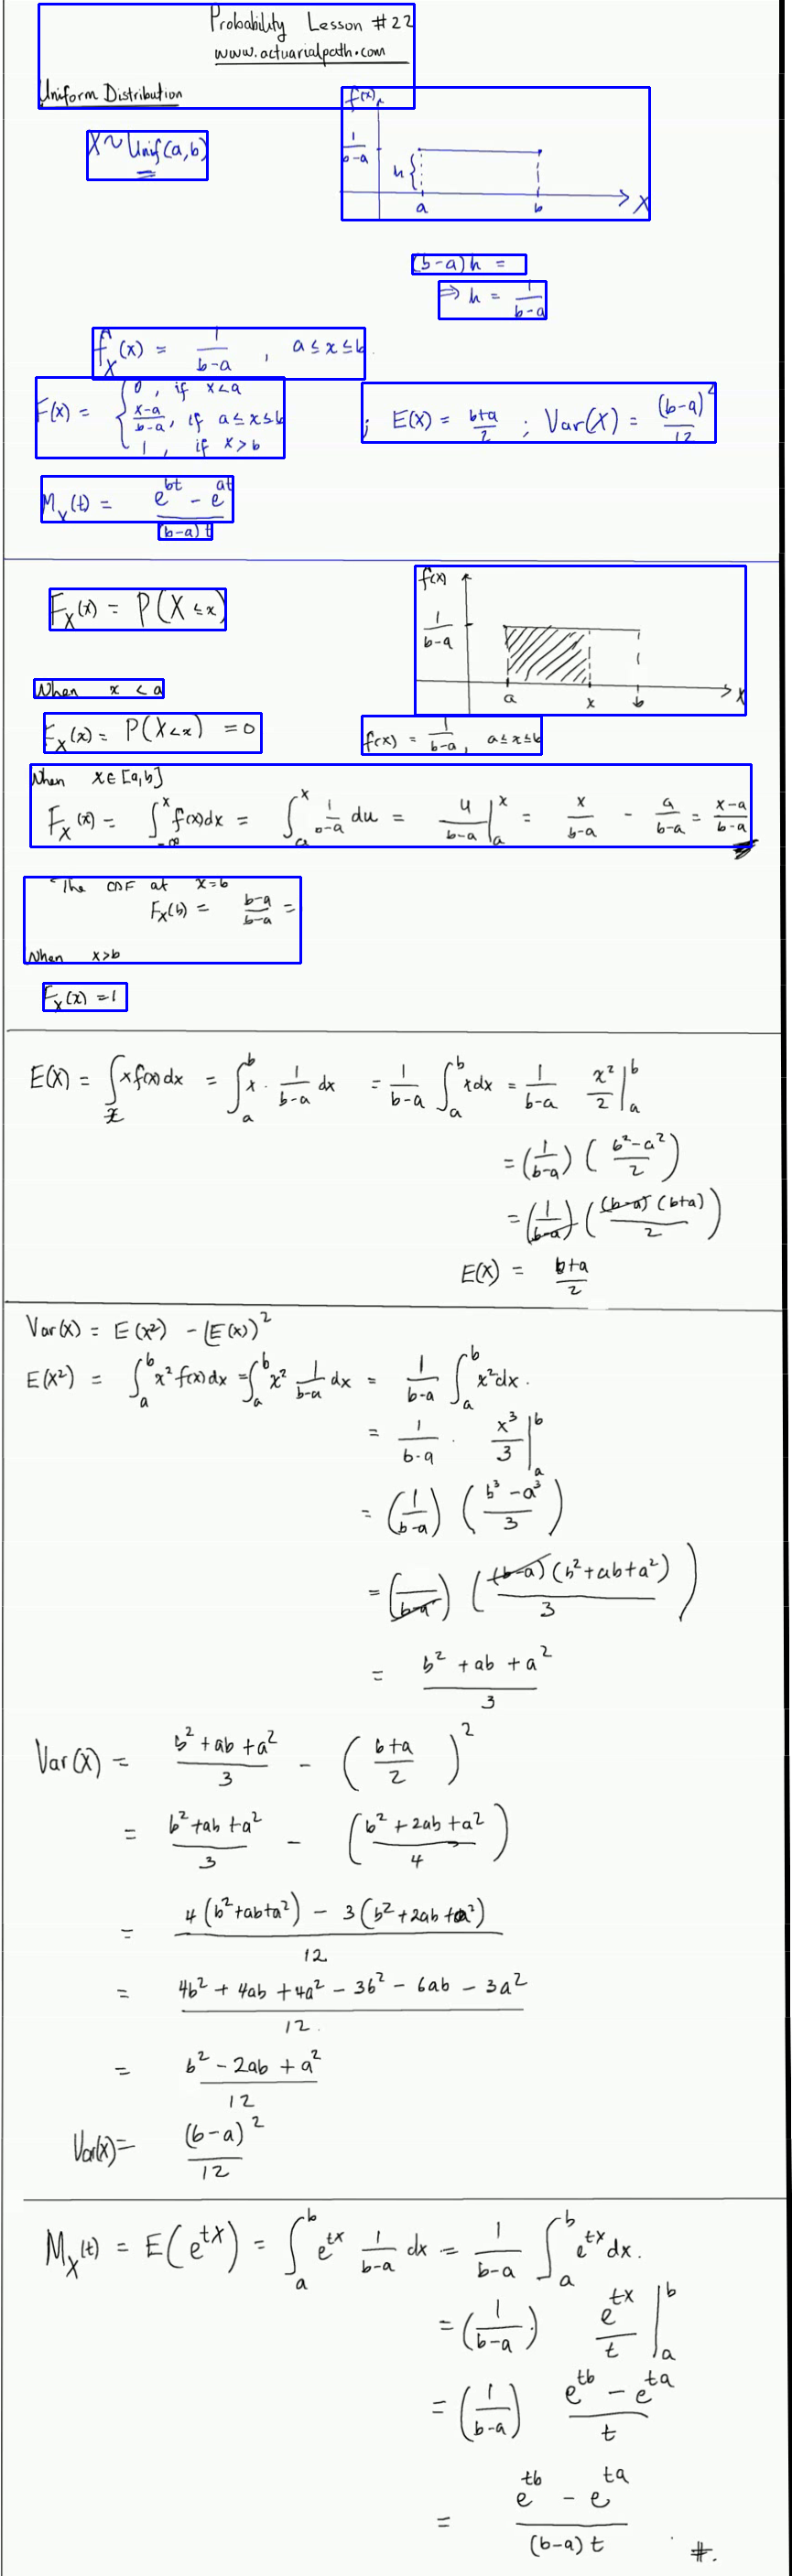 Probability Lesson #22
www.actuarialpath.com
Uniform Distribution
X ~ Unif(a,b)
f(x)
1/(b-a)
h{
a b X
(b-a)h =
⇒ h = 1/(b-a)
f_X(x) = 1/(b-a) , a ≤ x ≤ b
F(x) = { 0, if x<a
(x-a)/(b-a), if a ≤ x ≤ b
1, if x>b
; E(X) = (b+a)/2 ; Var(X) = (b-a)^2/12
M_X(t) = (e^{bt} - e^{at})/((b-a)t)
F_X(x) = P(X ≤ x)
f(x)
1/(b-a)
a x b X
When x < a
F_X(x) = P(X<x) = 0
f(x) = 1/(b-a), a ≤ x ≤ b
When x ∈ [a,b]
F_X(x) = ∫_{-∞}^{x} f(x)dx = ∫_a^x 1/(b-a) du = u/(b-a) |_a^x = x/(b-a) - a/(b-a) = (x-a)/(b-a)
The CDF at x=b
F_X(b) = (b-a)/(b-a) =
When x>b
F_X(x) = 1
E(X) = ∫_x x f(x) dx = ∫_a^b x · 1/(b-a) dx = 1/(b-a) ∫_a^b x dx = 1/(b-a) x^2/2 |_a^b
= (1/(b-a)) ((b^2-a^2)/2)
= (1/(b-a)) ((b-a)(b+a)/2)
E(X) = (b+a)/2
Var(X) = E(X^2) - (E(X))^2
E(X^2) = ∫_a^b x^2 f(x) dx = ∫_a^b x^2 1/(b-a) dx = 1/(b-a) ∫_a^b x^2 dx.
= 1/(b-a) · x^3/3 |_a^b
= (1/(b-a)) ((b^3-a^3)/3)
= (/(b-a)) ((b-a)(b^2+ab+a^2)/3)
= (b^2+ab+a^2)/3
Var(X) = (b^2+ab+a^2)/3 - ((b+a)/2)^2
= (b^2+ab+a^2)/3 - ((b^2+2ab+a^2)/4)
= (4(b^2+ab+a^2) - 3(b^2+2ab+a^2))/12
= (4b^2+4ab+4a^2-3b^2-6ab-3a^2)/12.
= (b^2-2ab+a^2)/12
Var(X) = (b-a)^2/12
M_X(t) = E(e^{tX}) = ∫_a^b e^{tx} 1/(b-a) dx = 1/(b-a) ∫_a^b e^{tx} dx.
= (1/(b-a)) e^{tx}/t |_a^b
= (1/(b-a)) (e^{tb} - e^{ta})/t
= (e^{tb} - e^{ta})/((b-a)t) #.